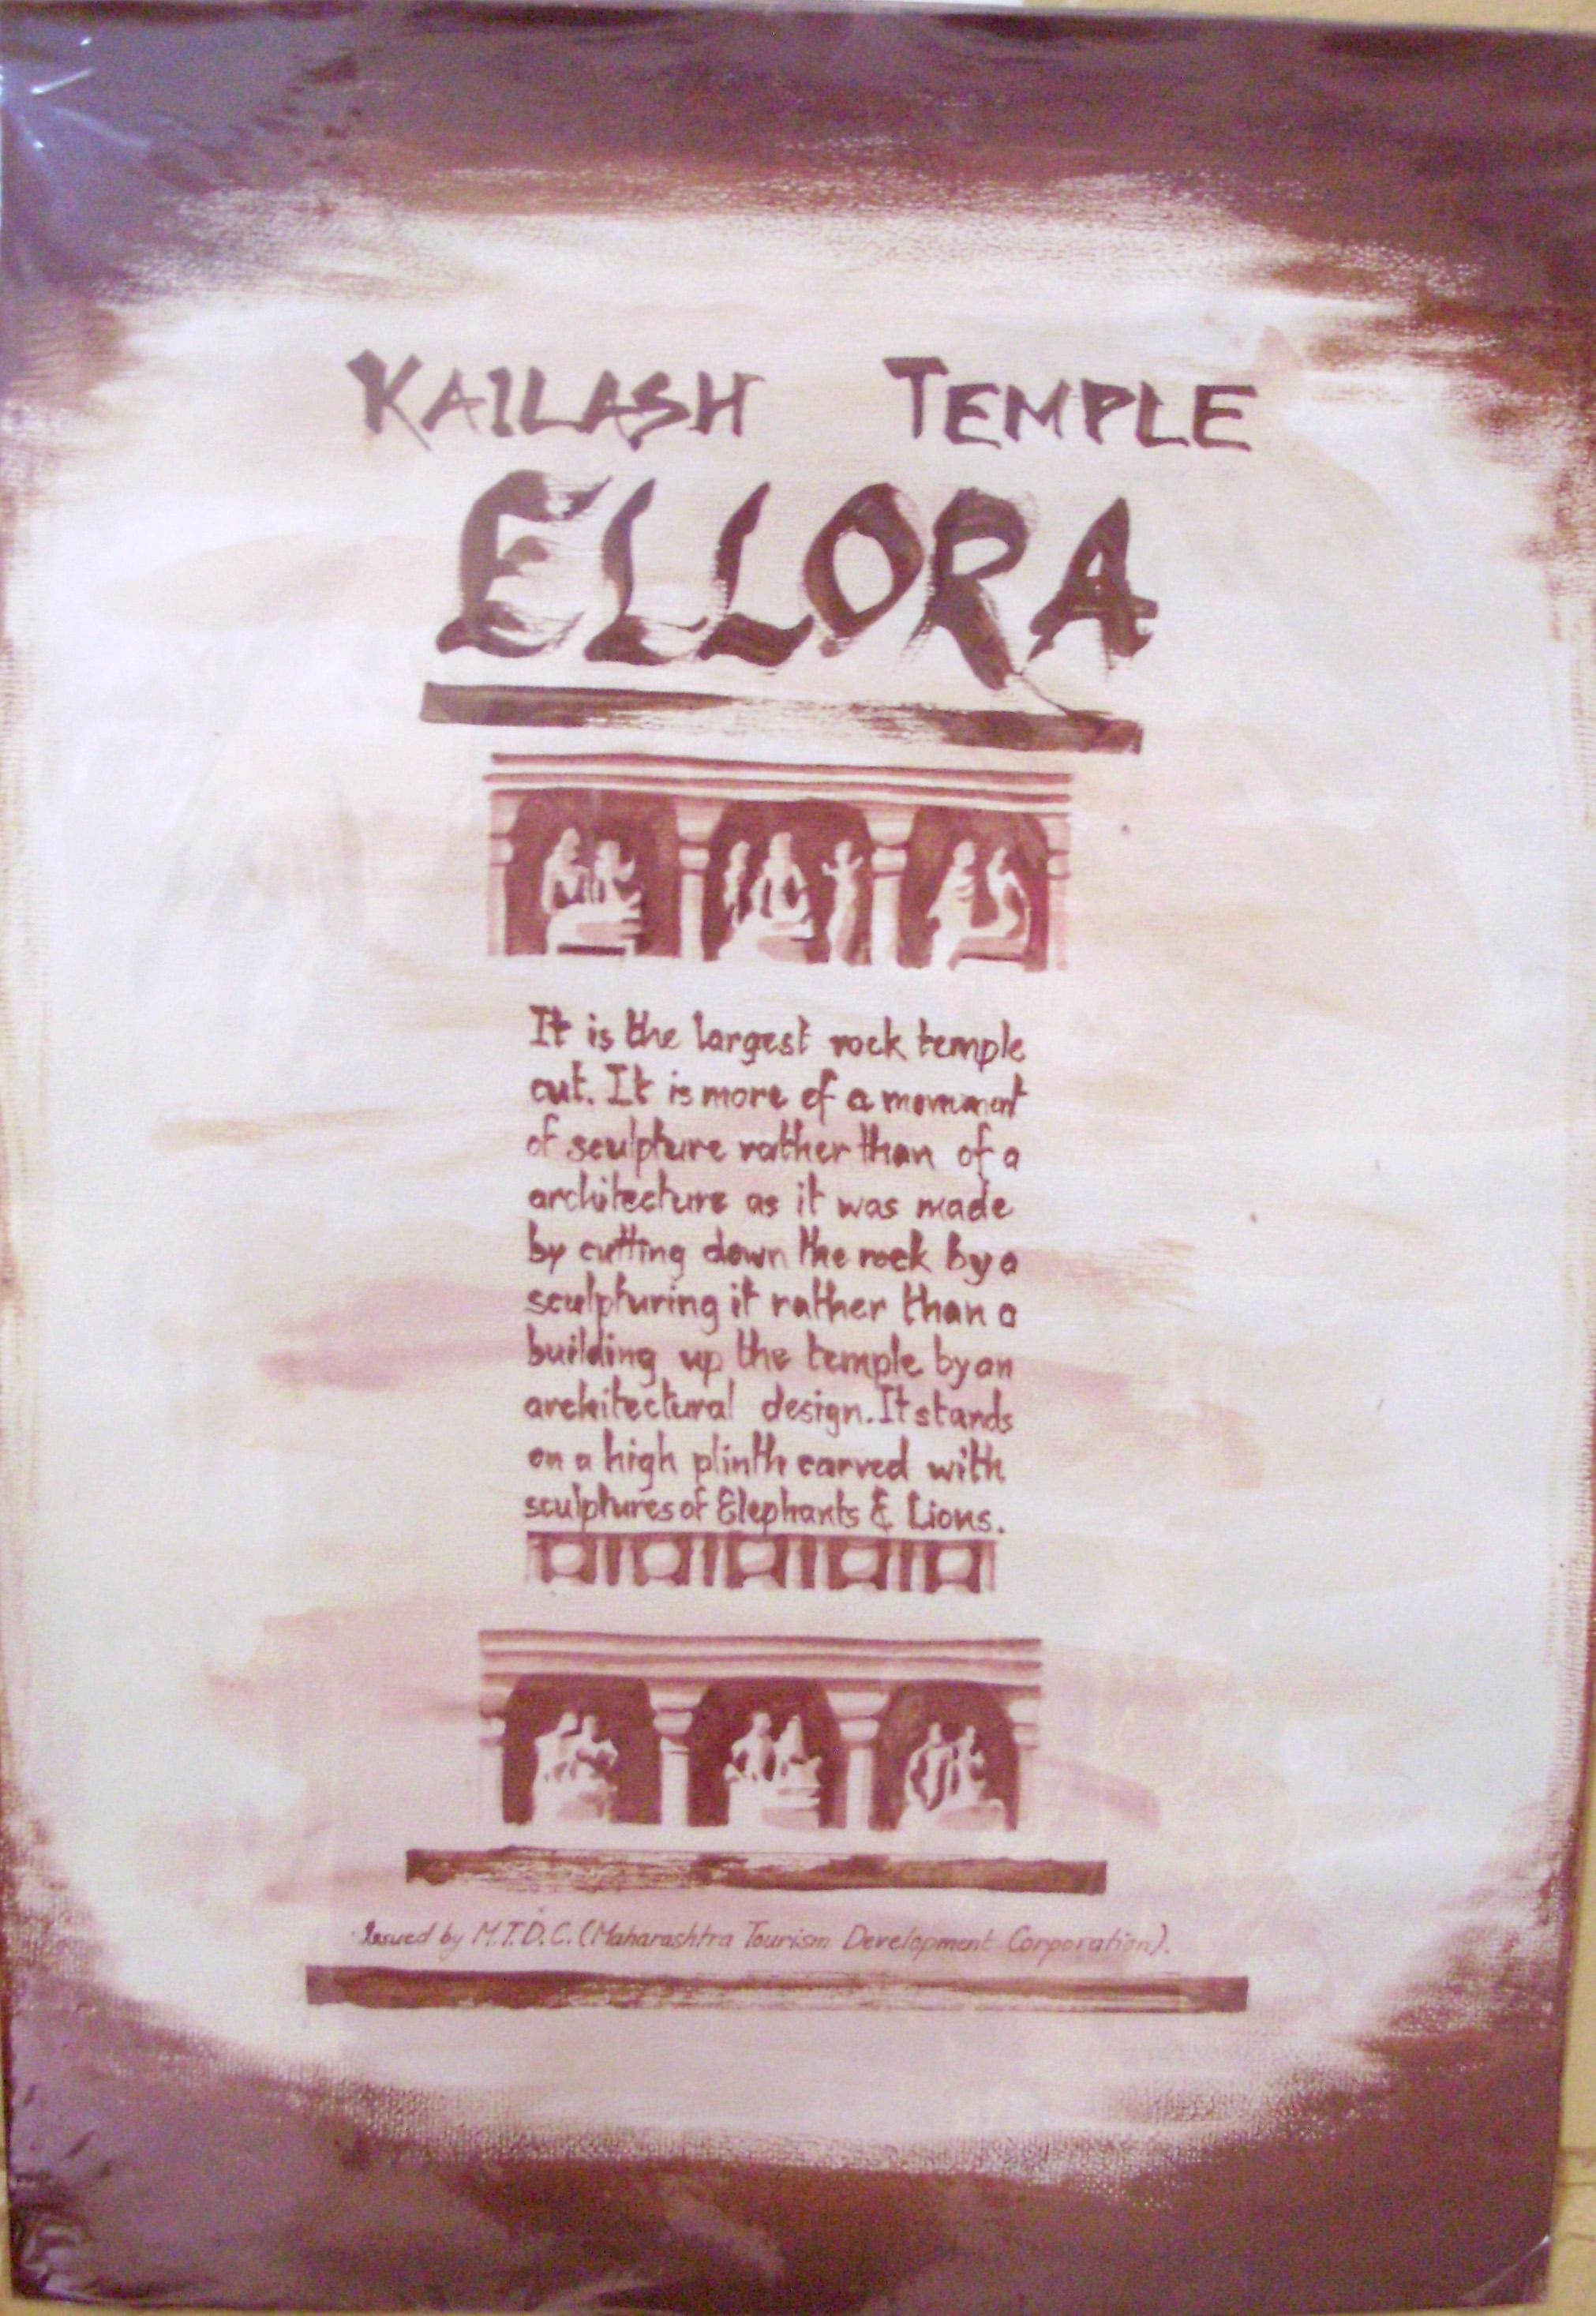 KAILASH TEMPLE
ELLORA
It is the largest rock temple
cut. It is more of a monument
of sculpture rather than of a
architecture as it was made
by cutting down the rock by a
sculpturing it rather than a
building up the temple by an
architectural design. It stands
on a high plinth carved with
sculptures of Elephants & Lions.
Issued by M.T.D.C. (Maharashtra Tourism Development Corporation).